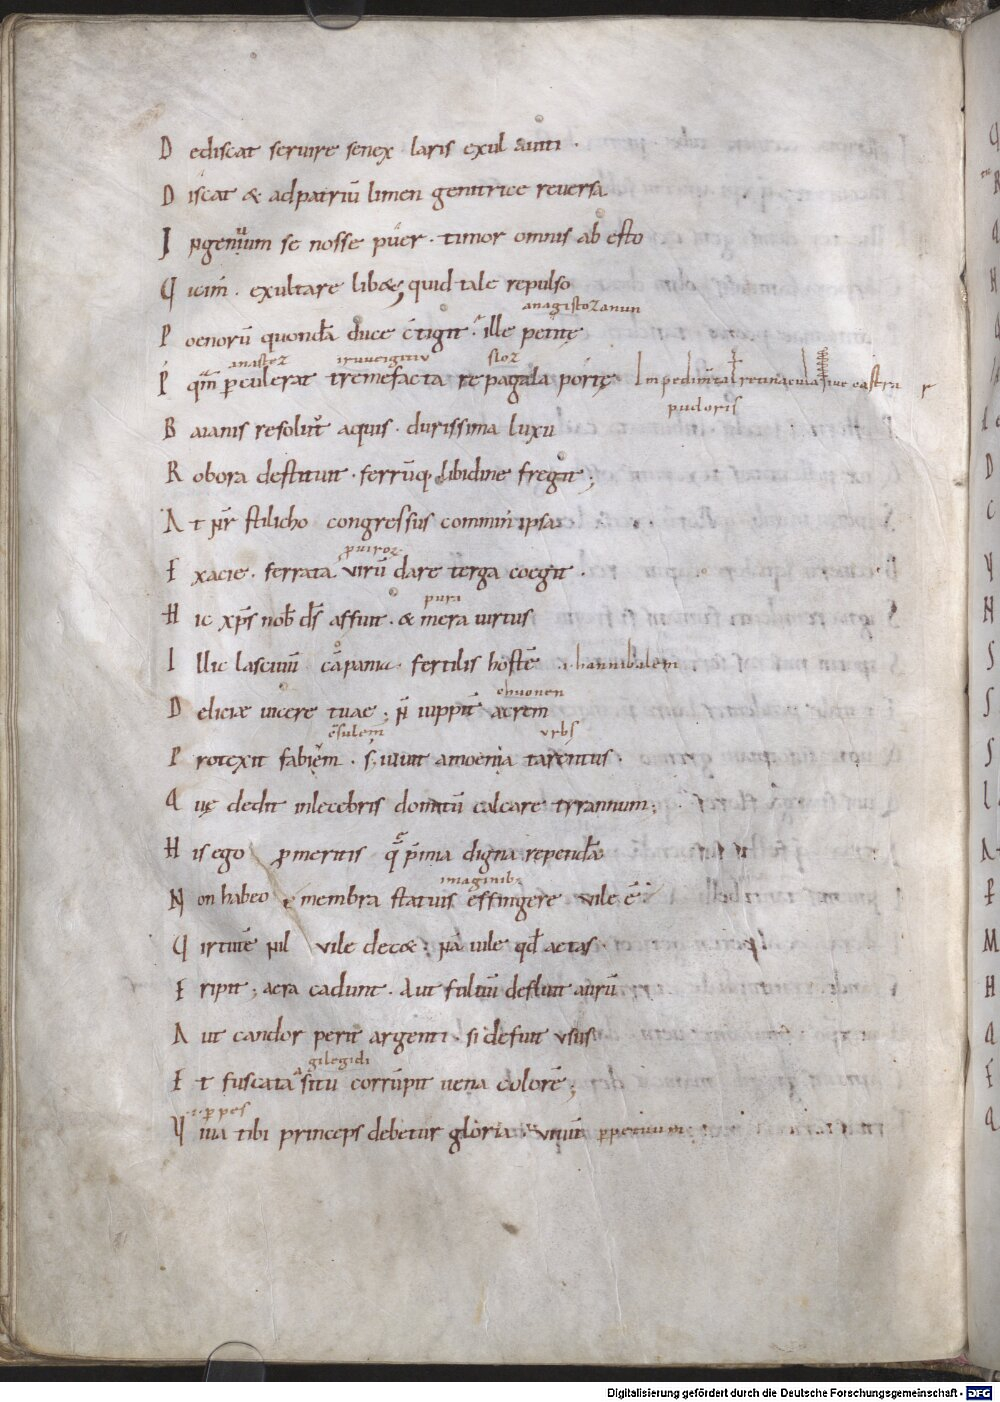 D ediscat seruire senex laris exul auiti ·
D iscat & adpatriū limen genitrice reuersa
I ngenuum se nosse puer · timor omnis ab esto
V icim̄ · exultare lib& quid tale repulso
anagistozanun
P oenorū quondā duce c̄tigit · ille petitę
anastoz stoz
P qm̄ p̄culerat tremefacta repagala portę Impedim̄ta l retinacula siue castra
pudoris
B aianis resolut aquis · durissima luxu
R obora destituit · ferrūq· libidine fregit ;
A t nr̄ stilicho congressus comminus ipsa
puiroz
E xacie · ferrata virū dare terga coegit ·
pura
H ic xp̄s nob̄ ds̄ affuit · & mera uirtus
I llic lasciuū cāpania · fertilis hostē ·i· hannibalem
chuonen
D eliciæ uicere tuae ; n̄ iuppit̄ acrem
c̄sulem urbs
P rotexit fabium · s; iuuit amoenia tarentus ·
Q uę dedit inlecebris domitū calcare tyrannum ;
H is ego p̄meritis q̄ p̄mia digna rependā
imaginib;
N on habeo membra statuis effingere vile ē
V irtutē nil vile dec& ; nā uile qd̄ aetas ·
E ripit ; aera cadunt · Aut fuluū defluit aurū
A ut candor perit argenti · si defuit vsus
gilegidi
E t fuscata situ corrūpit uena colorē ;
·i· p̄pes
V iua tibi princeps debetur gloria · uiuūt perpetuum
Digitalisierung gefördert durch die Deutsche Forschungsgemeinschaft - DFG